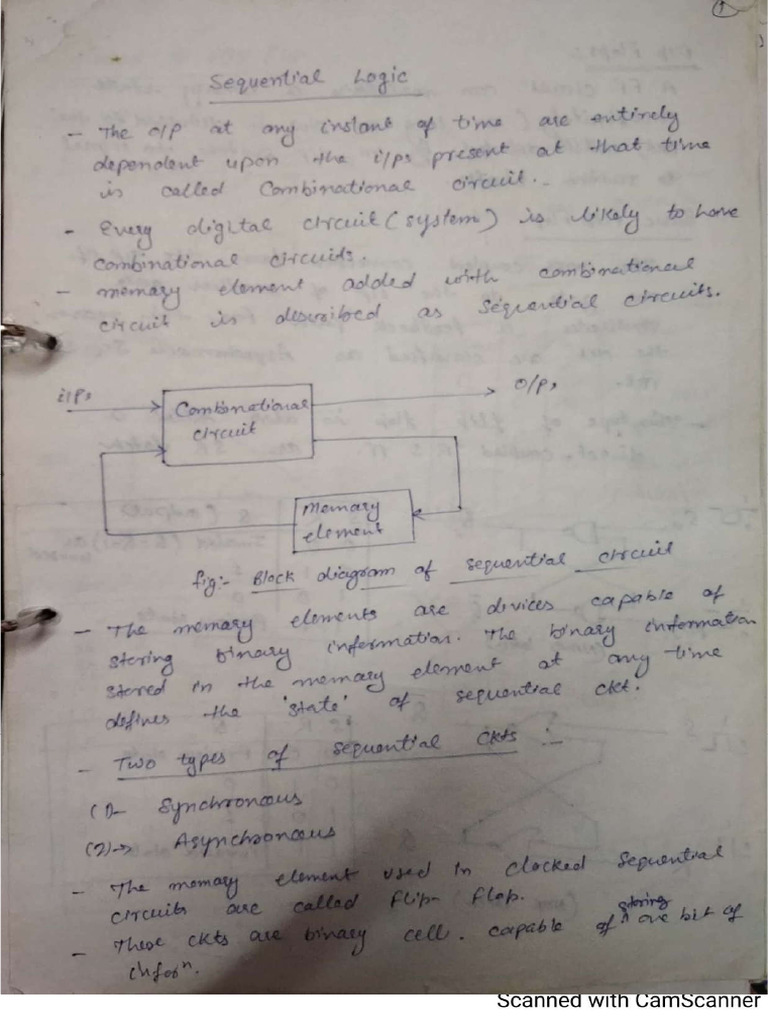 1
Sequential Logic
- The O/P at any instant of time are entirely
dependent upon the i/ps present at that time
is called Combinational circuit.
- Every digital circuit (system) is likely to have
combinational circuits.
- memory element added with combinational
circuit is described as sequential circuits.
i/Ps
Combinational
circuit
O/Ps
Memory
element
fig:- Block diagram of sequential circuit
- The memory elements are devices capable of
storing binary information. The binary information
stored in the memory element at any time
defines the 'state' of sequential ckt.
- Two types of sequential ckts :-
(1)- Synchronous
(2)-> Asynchronous
- The memory element used in clocked sequential
circuits are called flip-flop.
- These ckts are binary cell. capable of storing one bit of
inforn.
Scanned with CamScanner